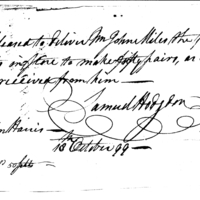 eased to deliver Mr John Miles the
in store to make fifty pairs, as
received from him —
Samuel Hodgdon
n Harris —
18th October 99 —